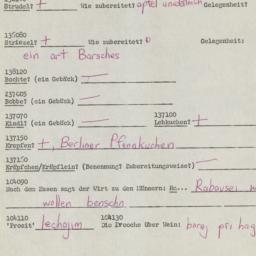 Strudel? + Wie zubereitet? apfel Gelegenheit?
135080
Striezel? + Wie zubereitet? Gelegenheit:
ein art Barsches
138120
Bochte? (ein Gebäck) —
237605
Bobbe? (ein Gebäck) —
137070 137100
Kindl? (ein Gebäck) — Lebkuchen? +
137150
Krapfen? +, Berliner Pfannkuchen
Kräpfchen/Kräpflein? (Benennung? Zubereitungsweise?) —
104090
Nach dem Essen sagt der Wirt zu den Männern: Ra... Rabousei
wollen benschn
104110 104130
'Prosit' lechajim Die Broche über Wein: borej pri hag